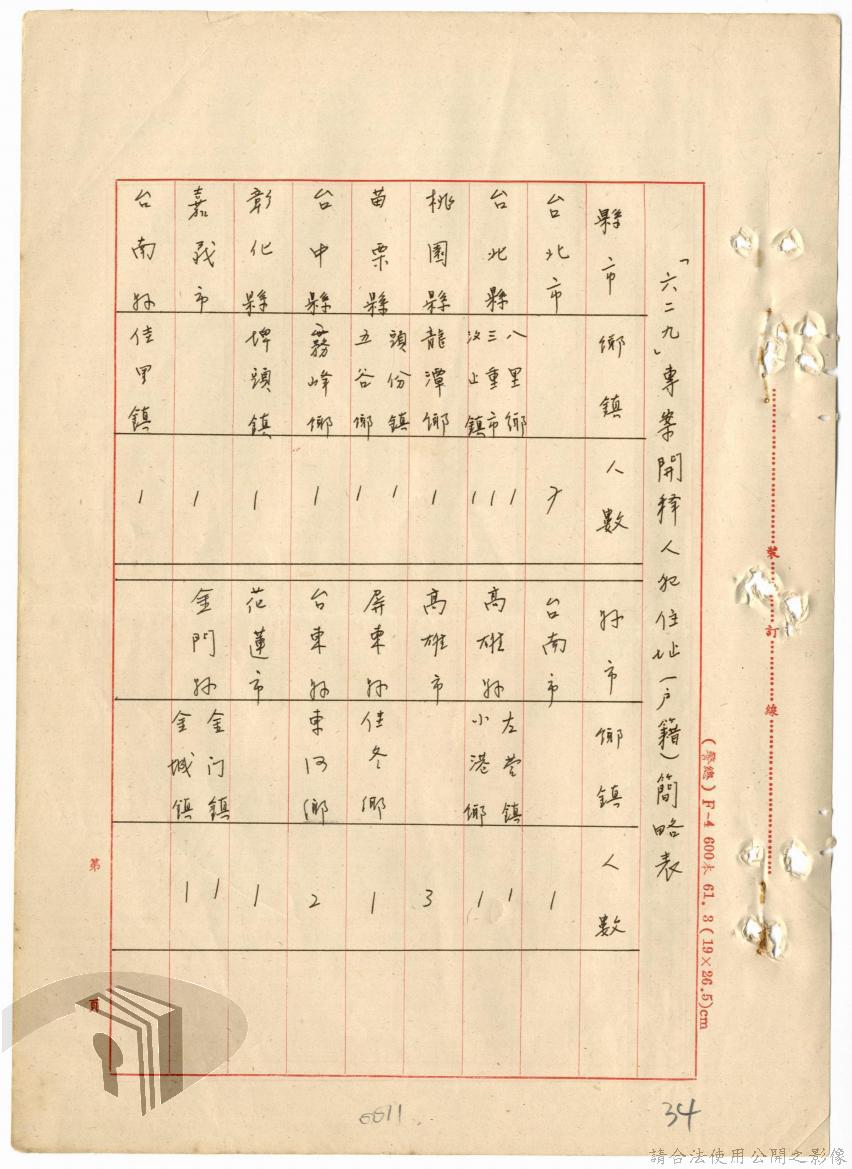 「六二九」專案開釋人犯住址(戶籍)簡略表
縣市 鄉鎮 人數
台北市 7
台北縣 八里鄉 1
三重市 1
汐止鎮 1
桃園縣 龍潭鄉 1
苗栗縣 頭份鎮 1
五谷鄉 1
台中縣 霧峰鄉 1
彰化縣 埤頭鎮 1
嘉義市 1
台南縣 佳里鎮 1
縣市 鄉鎮 人數
台南市 1
高雄縣 左營鎮 1
小港鄉 1
高雄市 3
屏東縣 佳冬鄉 1
台東縣 東河鄉 2
花蓮市 1
金門縣 金门鎮 1
金城鎮 1
裝訂線
(警總)F-4 600本 61.3(19×26.5)cm
第 頁
0611
34
請合法使用公開之影像